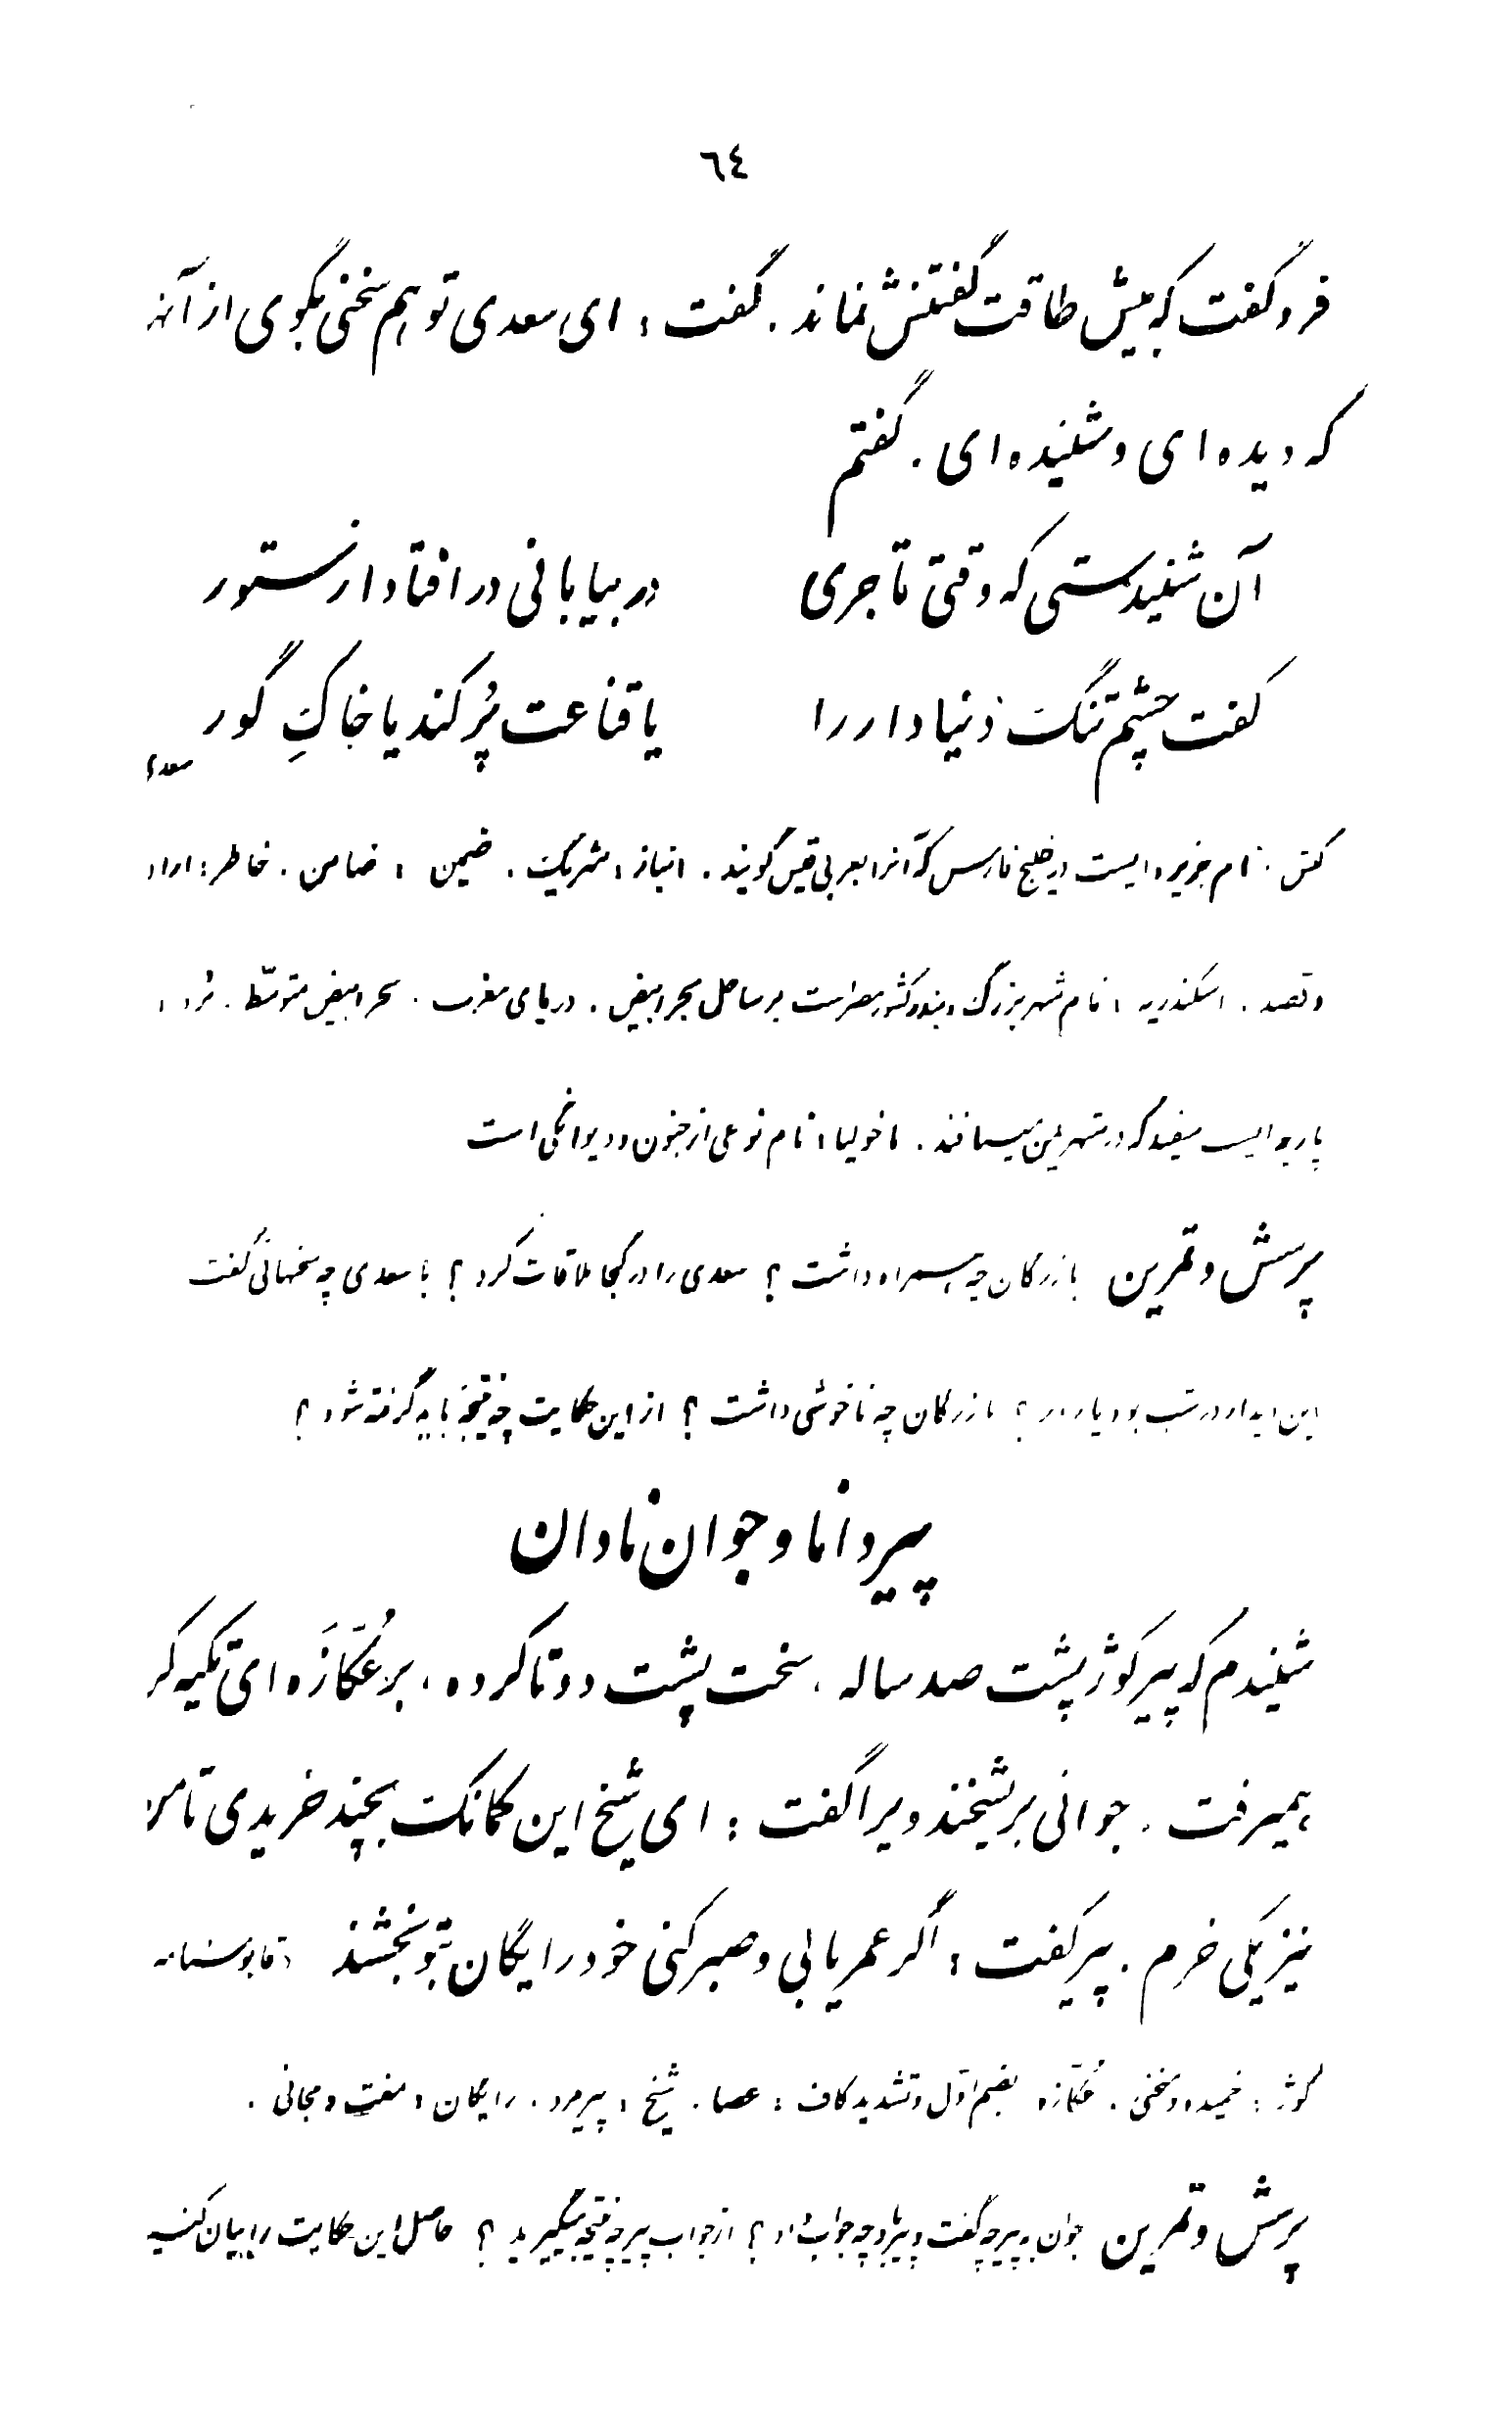 ٦٤
فرو گفت که بیش طاقت گفتنش نماند . گفت : ای سعدی تو هم سخنی بگوی از آنه
که دیده ای و شنیده ای . گفتم
آن شنیدستی که وقتی تاجری در بیابانی درافتاد از ستور
گفت چشم تنگ دنیا دار را یا قناعت پُر کند یا خاکِ گور
سعدی
کیش : نام جزیره ایست در خلیج فارس که آنرا بعربی قیس گویند . انباز : شریک . ضمین : ضامن . خاطر : اراد
و قصد . اسکندریه : نام شهر بزرگ و بندر کشور مصر است بر ساحل بحر ابیض . دریای مغرب . بحر ابیض متوسّط . بُرد :
پارچه ایست سفید که در شهر یمن میبافند . ماخولیا : نام نوعی از جنون و دیوانگی است
پرسش و تمرین بازرگان چه همراه داشت ؟ سعدی را در کجا ملاقات کرد ؟ با سعدی چه سخنهائی گفت
این دیدار در شب بود یا روز ؟ بازرگان چه ناخوشی داشت ؟ از این حکایت چه نتیجه باید گرفته شود ؟
پیر دانا و جوان نادان
شنیدم که پیر کوژ پشت صد ساله ، سخت پشت دوتا کرده ، بر عُکّازَه ای تکیه کر
همیرفت . جوانی بریشخند ویرا گفت : ای شیخ این کمانک بچند خریدی تا من
نیز یکی خرم . پیر گفت : اگر عمر یابی و صبر کنی خود رایگان بتو بخشند «قابوسنامه
کوژ : خمیده و منحنی . عُکّازه بضم اوّل و تشدید کاف : عصا . شیخ : پیرمرد . رایگان : مفت و مجانی .
پرسش و تمرین جوان به پیر چه گفت و پیر باو چه جواب داد ؟ از جواب پیر چه نتیجه میگیرید ؟ حاصل این حکایت را بیان کنید